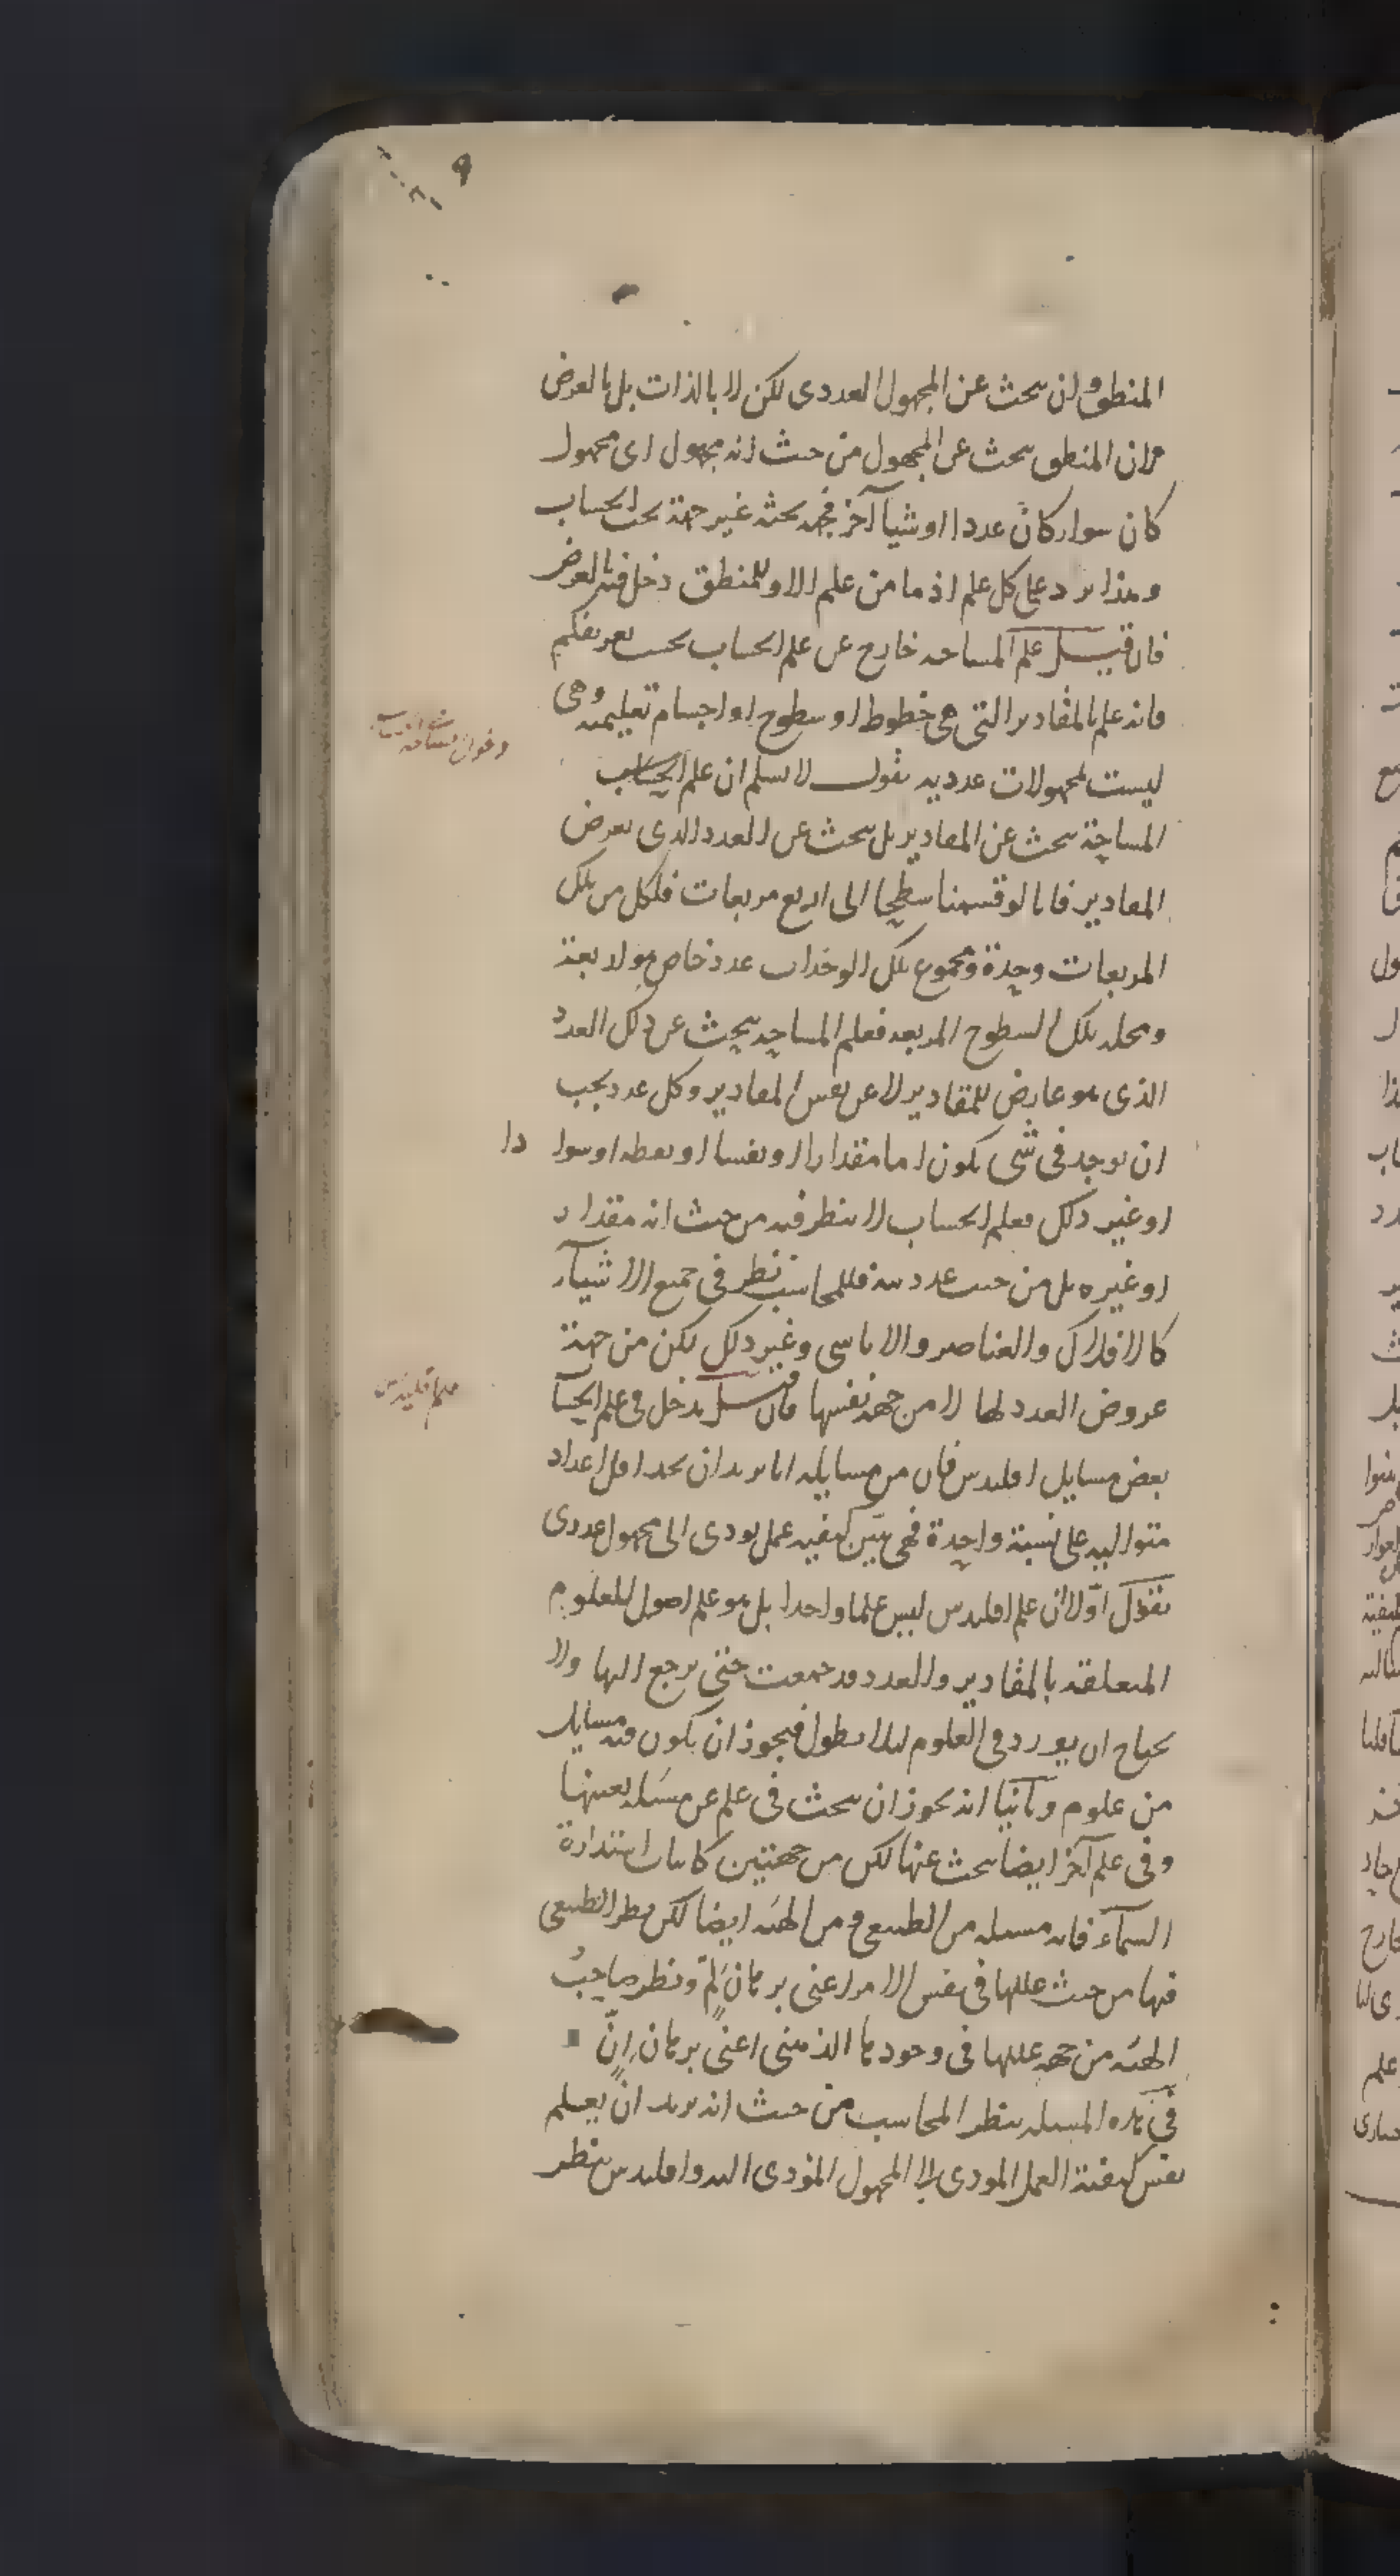 ٩
المنطق وان بحث عن المجهول العددى لكن لا بالذات بل بالعرض
فان المنطق يبحث عن المجهول من حيث انه مجهول اى مجهول
كان سواء كان عددا او شيأ آخر فجهة بحثه غير جهة بحث الحساب
وهذا يرد على كل علم اذ ما من علم الا وللمنطق دخل فيه بالعرض
فان قيل علم المساحه خارج عن علم الحساب بحسب تعريفكم
فانه علم بالمقادير التى هى خطوط او سطوح او اجسام تعليميه وهى
ليست بمجهولات عدديه نقول لا نسلم ان علم
المساحة يبحث عن المقادير بل يبحث عن العدد الذى يعرض
المقادير فانا لو قسمنا سطحا الى اربع مربعات فلكل من تلك
المربعات وحدة ومجموع تلك الوحدات عدد خاص هو اربعة
ومحله تلك السطوح المربعه فعلم المساحه يبحث عن ذلك العدد
الذى هو عارض للمقادير لا عن نفس المقادير وكل عدد يجب
ان يوجد فى شى يكون اما مقدارا او نفسا او نقطه او سوا دا
او غير ذلك فعلم الحساب لا ينظر فيه من حيث انه مقدار
او غيره بل من حيث عدديته فللمحاسب نظر فى جميع الاشياء
كالافلاك والعناصر والاناسى وغير ذلك لكن من جهة
عروض العدد لها لا من جهة نفسها فان قيل يدخل فى علم الحسا
بعض مسايل اقليدس فان من مسايله انا نريد ان نجد اقل اعداد
متواليه على نسبة واحدة فهى تبين كيفيه عمل يودى الى مجهول عددى
نقول اولا ان علم اقليدس ليس علما واحدا بل هو علم اصول للعلوم
المتعلقه بالمقادير والعدد قد جمعت حتى يرجع اليها ولا
يحتاج ان يورد فى العلوم ليلا يطول فيجوز ان يكون فيه مسايل
من علوم وثانيا انه يجوز ان يبحث فى علم عن مسئله بعينها
وفى علم آخر ايضا يبحث عنها لكن من جهتين كاثبات استدارة
السمآء فانه مسئله من الطبيعى ومن الهيئه ايضا لكن ينظر الطبيعى
فيها من حيث عللها فى نفس الامر اعنى برهان لِمّ ونظر صاحب
الهيئه من جهة عللها فى وجودها الذهنى اعنى برهان اِنّ
فى هذه المسئله ينظر المحاسب من حيث انه يريد ان يعلم
نفس كيفية العمل المودى الى المجهول المودى اليه واقليدس ينظر
علم اقليدس